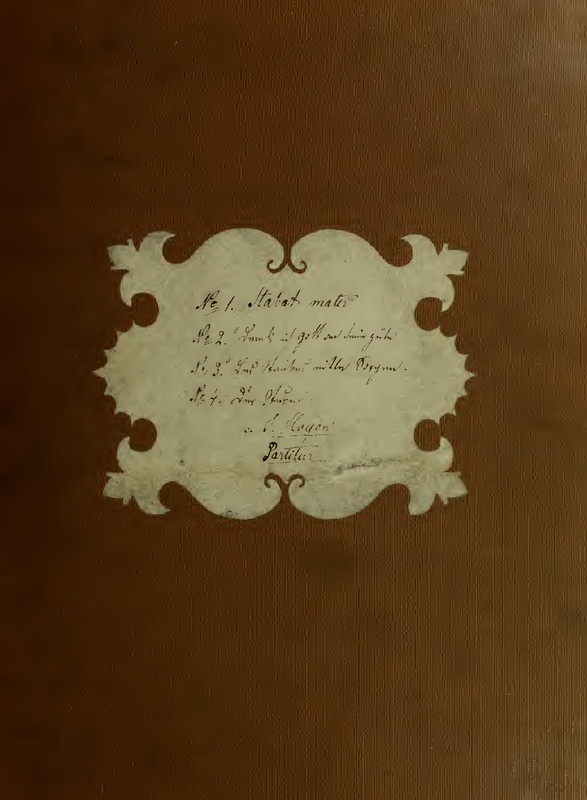 No 1. Stabat mater
No 2. Denk ich Gott an deine Güte
No 3. Des Staubes eitle Sorgen.
No 4. Der Sturm.
J. Haydn
Partitur